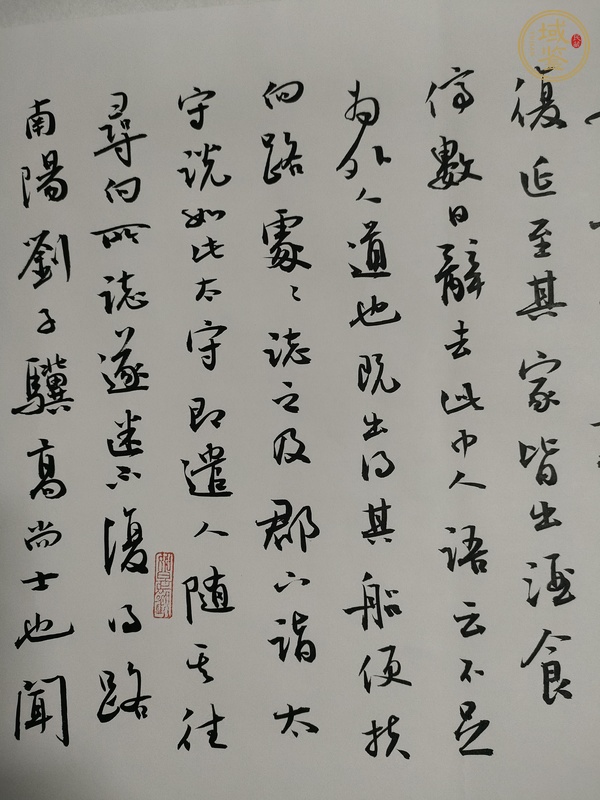 復延至其家皆出酒食
停數日辭去此中人語云不足
為外人道也既出得其船便扶
向路處〻誌之及郡下詣太
守說如此太守即遣人隨其往
尋向所誌遂迷不復得路
南陽劉子驥高尚士也聞
域鉴